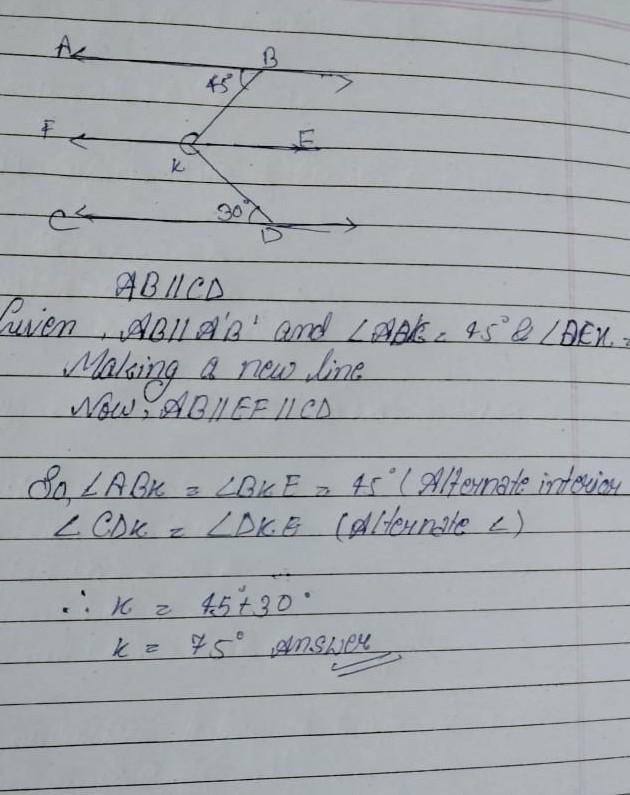 A B
45°
F E
K
30°
C D
AB||CD
Given, AB||A'B' and ∠ABK = 45° &
Making a new line
Now, AB||EF||CD
So, ∠ABK = ∠BKE = 45° (Alternate interior
∠CDK = ∠DKE (Alternate ∠)
∴ K = 45+30°
K = 75° Answer